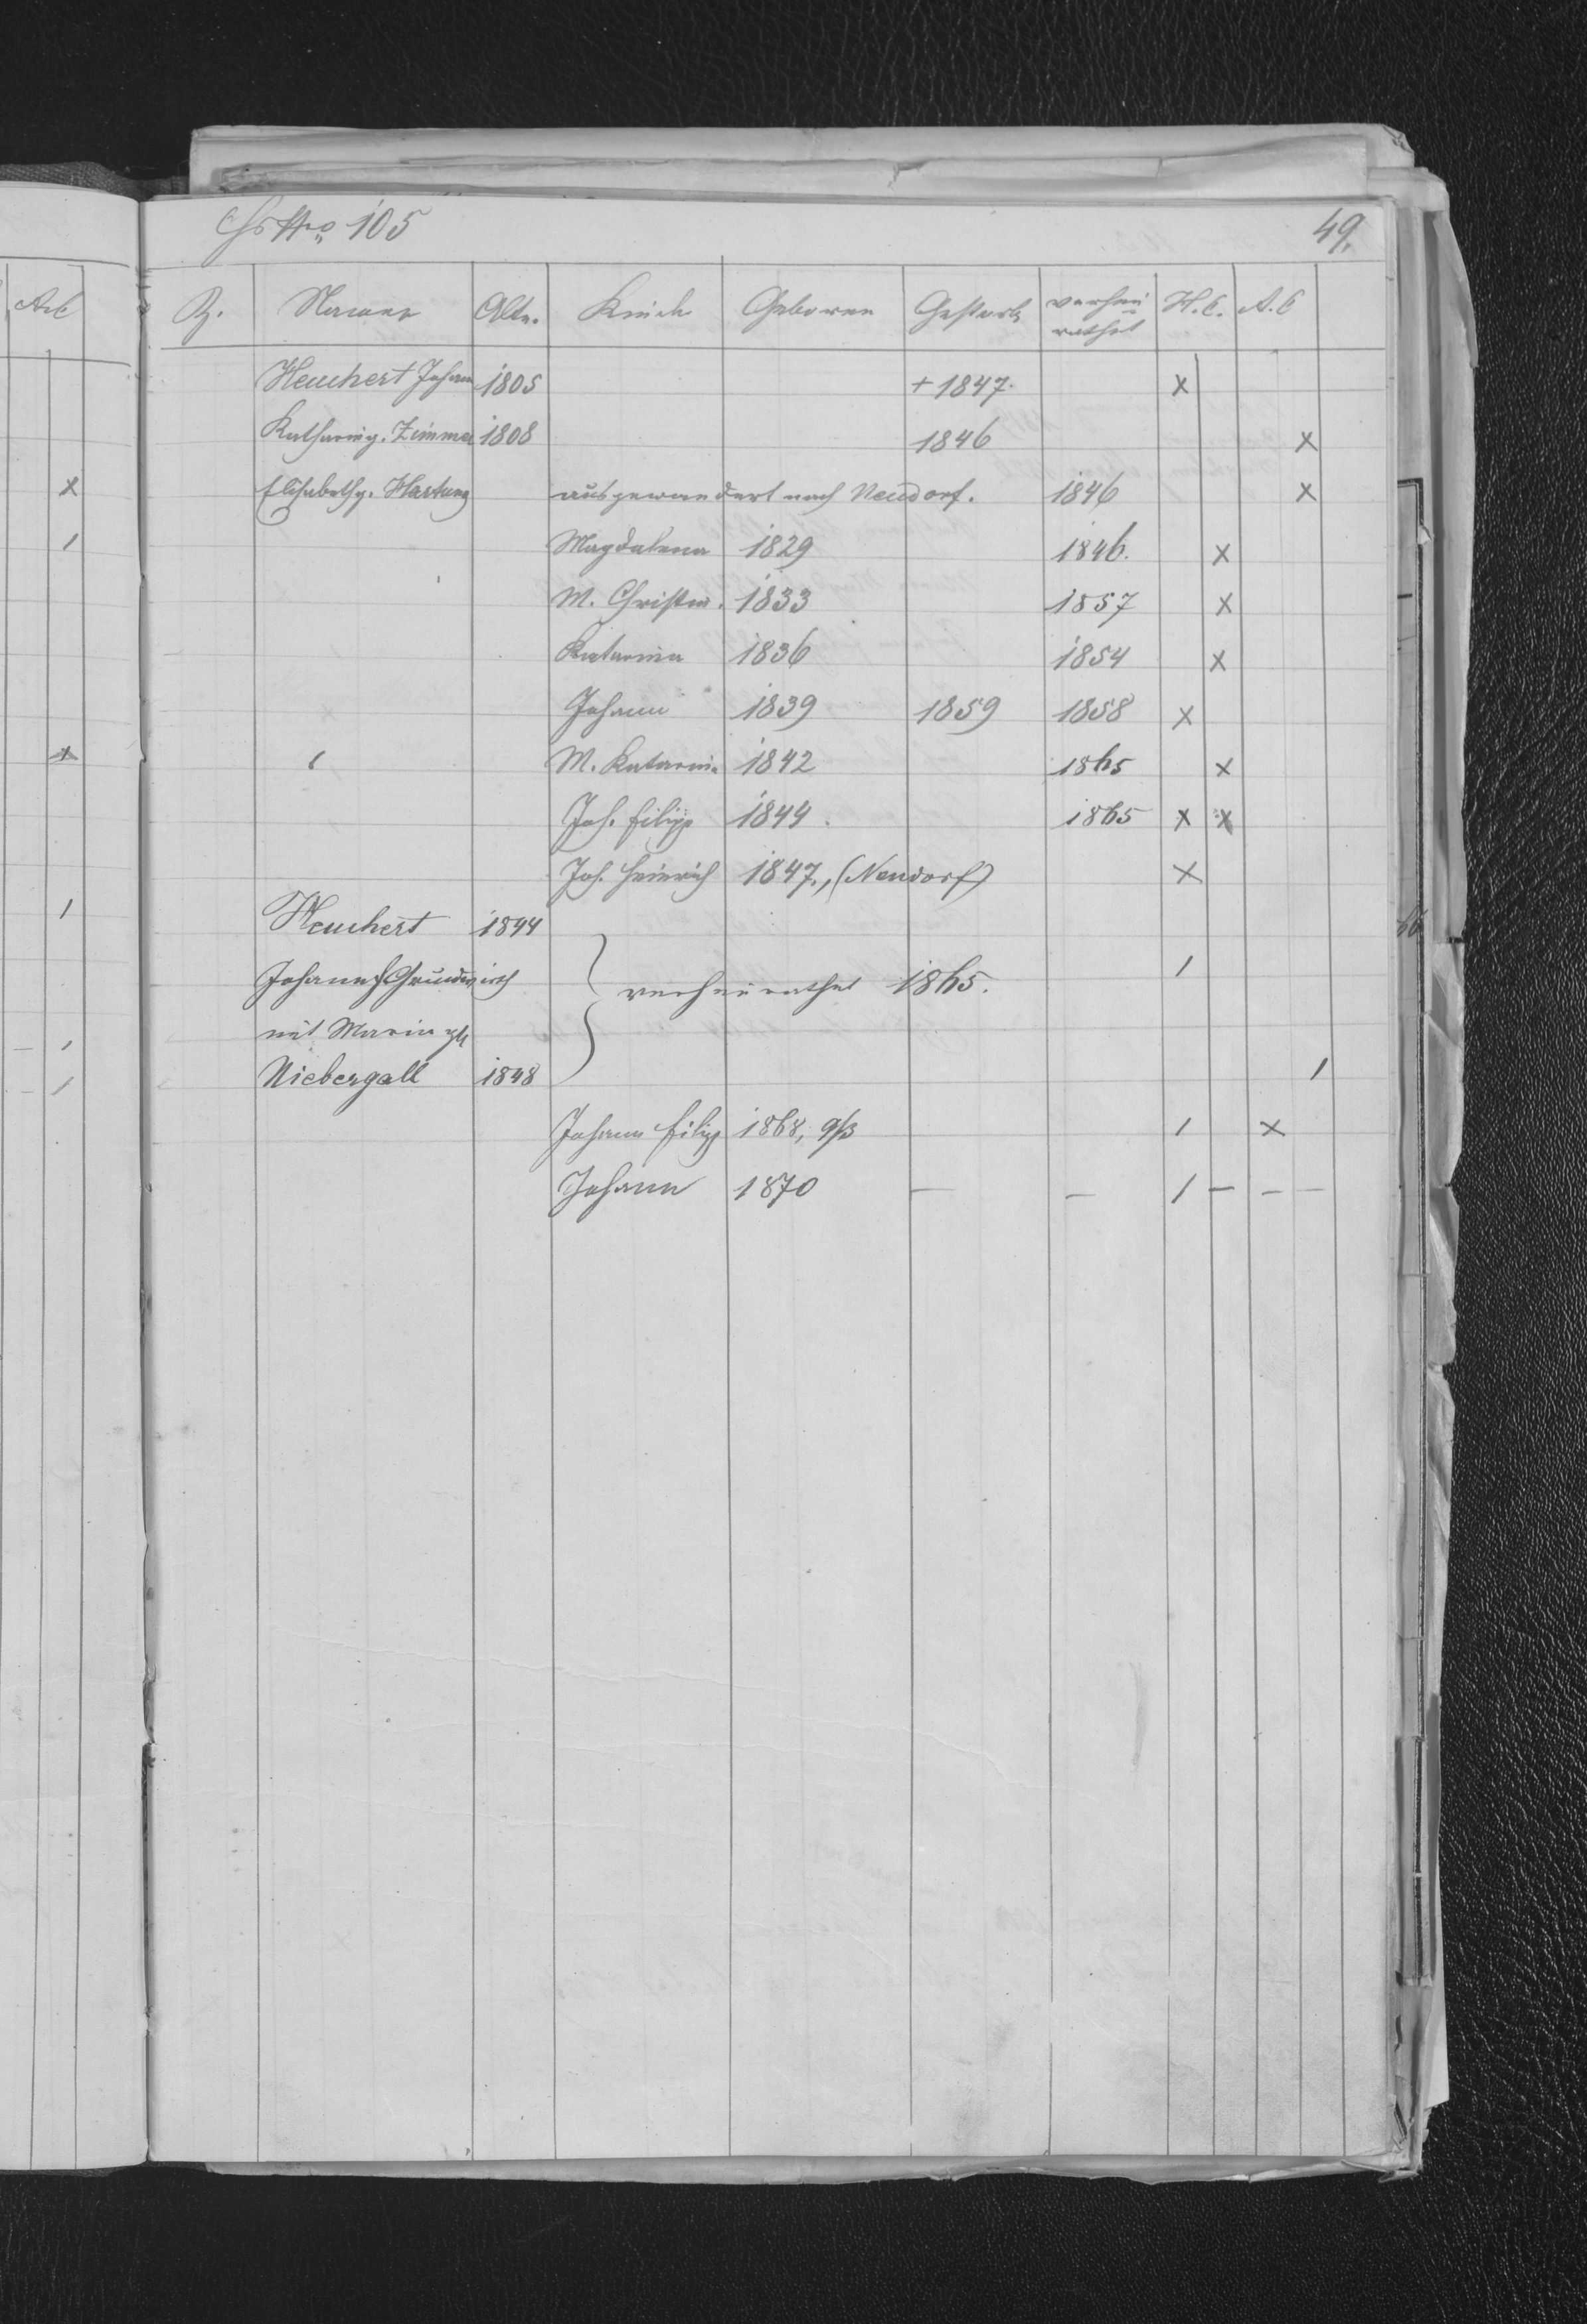 Hs Nro 105 49.
Z. Namen Alter. Kinder Geboren Gestorb. verheirathet H.C. A.C
Heuchert Johann 1805 + 1847. x
Katharina g. Zimmer 1808 1846 x
Elisabeth g. Hartung ausgewandert nach Neudorf. 1846 x
Magdalena 1829 1846. x
M. Christin. 1833 1857 x
Katarina 1836 1854 x
Johann 1839 1859 1858 x
M. Katarina 1842 1865 x
Joh. Filipp 1844. 1865 x x
Joh. Heinrich 1847., (Neudorf) x
Heuchert 1844
Johann Grundwirth } verheirathet 1865. /
mit Maria
Niebergall 1848 /
Johann Filipp 1868, 9/3 / x
Johann 1870 — — / — — —